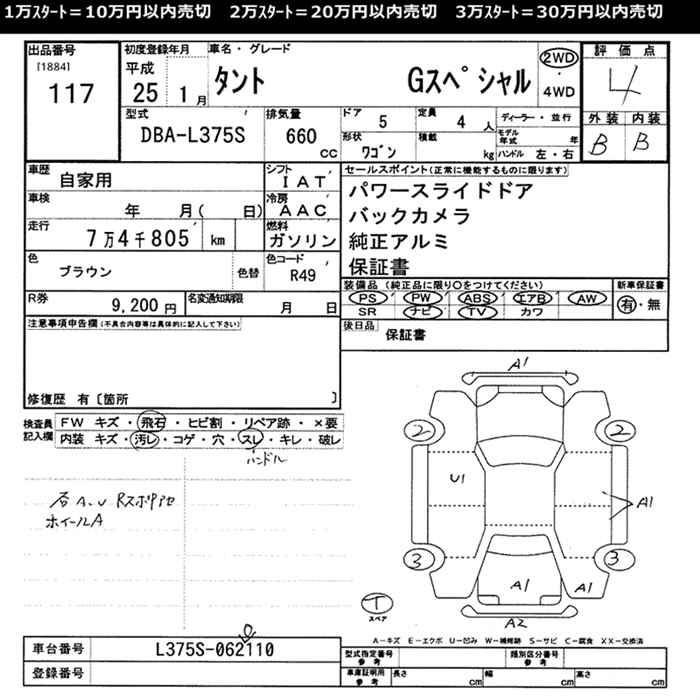 1万スタート＝10万円以内売切　2万スタート＝20万円以内売切　3万スタート＝30万円以内売切
出品番号
[1884]
117
初度登録年月
平成
25 1月
車名・グレード
タント Gスペシャル
2WD
・
4WD
評価点
4
外装 内装
B B
型式
DBA-L375S
排気量
660
cc
ドア 5
定員 4 人
形状 ワゴン
積載 kg
ディーラー・並行
モデル年式 年
ハンドル 左・右
車歴 自家用
シフト IAT
車検 年 月( 日)
冷房 AAC
走行 7万4千805 km
燃料 ガソリン
色 ブラウン 色替
色コード R49
R券 9,200円
名変通知期限 月 日
セールスポイント(正常に機能するものに限ります)
パワースライドドア
バックカメラ
純正アルミ
保証書
装備品 (純正品に限り○をつけてください)
PS PW ABS エアB AW
SR ナビ TV カワ
新車保証書
有・無
後日品 保証書
注意事項申告欄(不具合内容等は具体的に記入して下さい)
修復歴 有〔箇所 〕
検査員記入欄
FW キズ・飛石・ヒビ割・リペア跡・×要
内装 キズ・汚レ・コゲ・穴・スレ・キレ・破レ
ハンドル
ホイールA
A1
2 2
U1
A1
3 3
A1 A1
T
スペア
A2
A－キズ E－エクボ U－凹み W－補修跡 S－サビ C－腐食 XX－交換済
車台番号 L375S-062110
0
登録番号
型式指定番号
参考
類別区分番号
参考
車庫証明用
参考
長さ cm 幅 cm 高さ cm